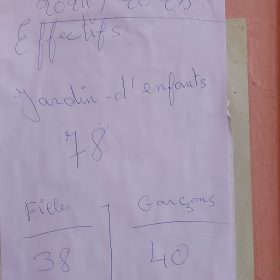 Effectifs
Jardin d'enfants
78
Filles Garçons
38 40